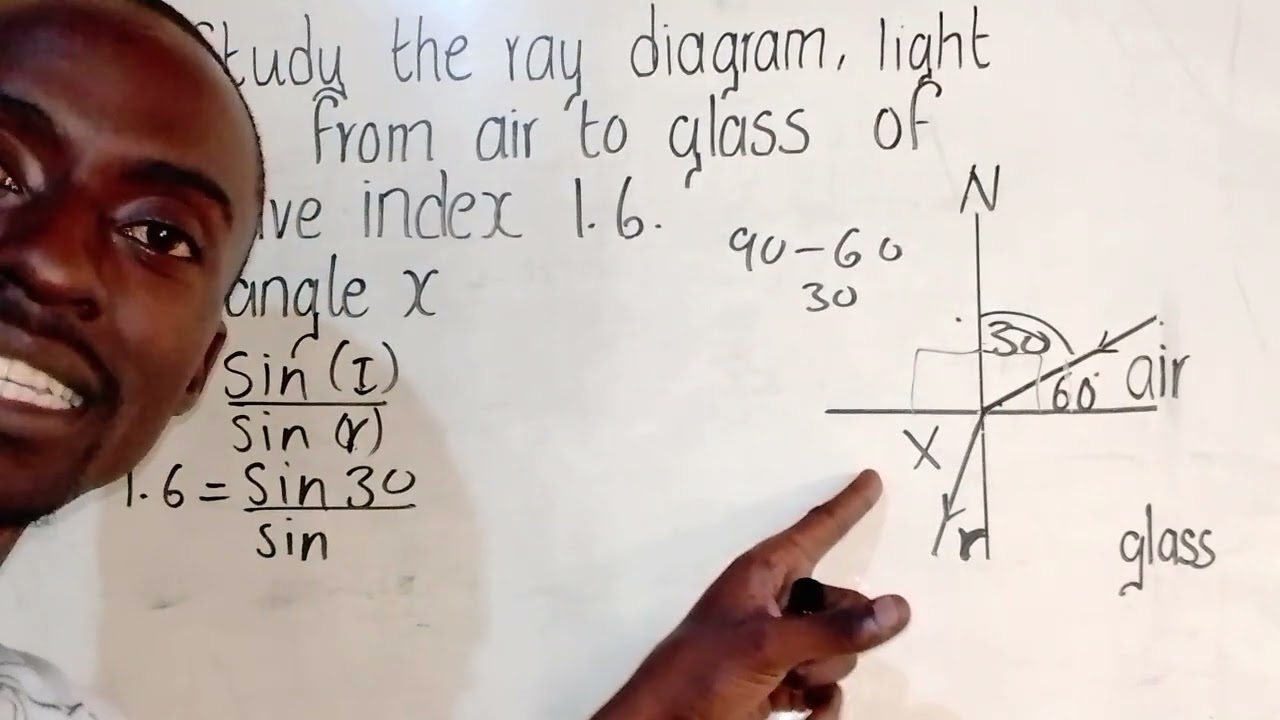 Study the ray diagram, light
from air to glass of
ive index 1.6.
angle x
Sin (I)
Sin (r)
1.6 = Sin 30
sin
90 - 60
30
N
30
60°
air
X
r
glass